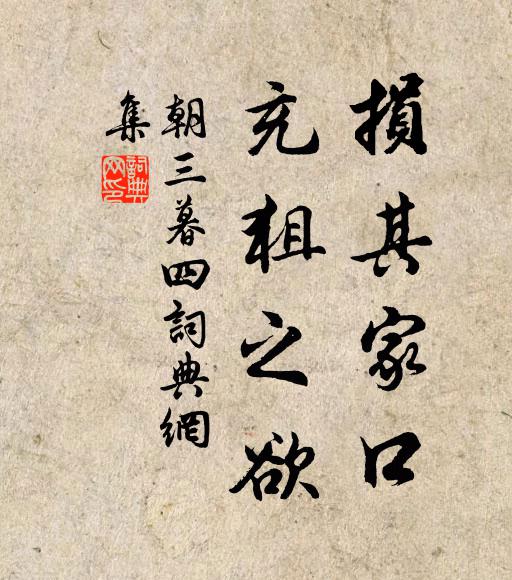 損其家口
充狙之欲
朝三暮四詞典網
集
詞典网印